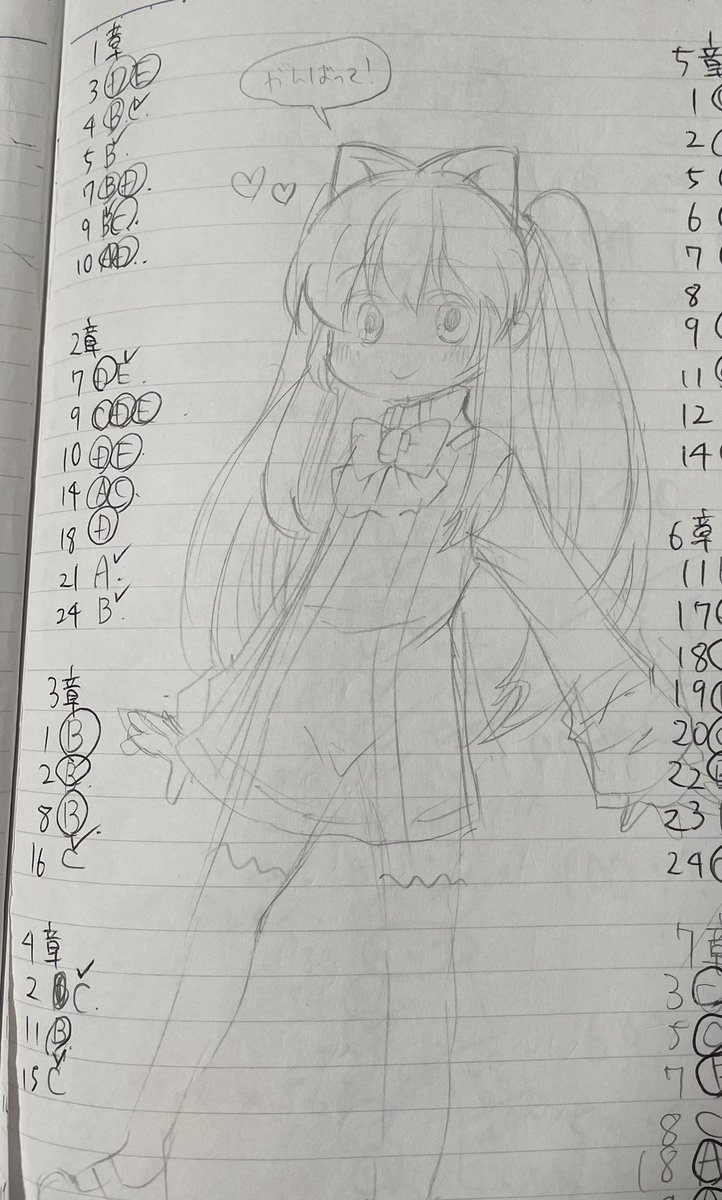 がんばって!
1章
3 D E
4 B C
5 B
7 B D
9 B E
10 A D
2章
7 D E
9 C D E
10 D E
14 A C
18 D
21 A
24 B
3章
1 B
2 B
8 B
16 C
4章
2 C
11 B
15 C
5章
1
2
5
6
7
8
9
11
12
14
6章
11
17
18
19
20
22
23
24
7章
3
5
7
8
18 A